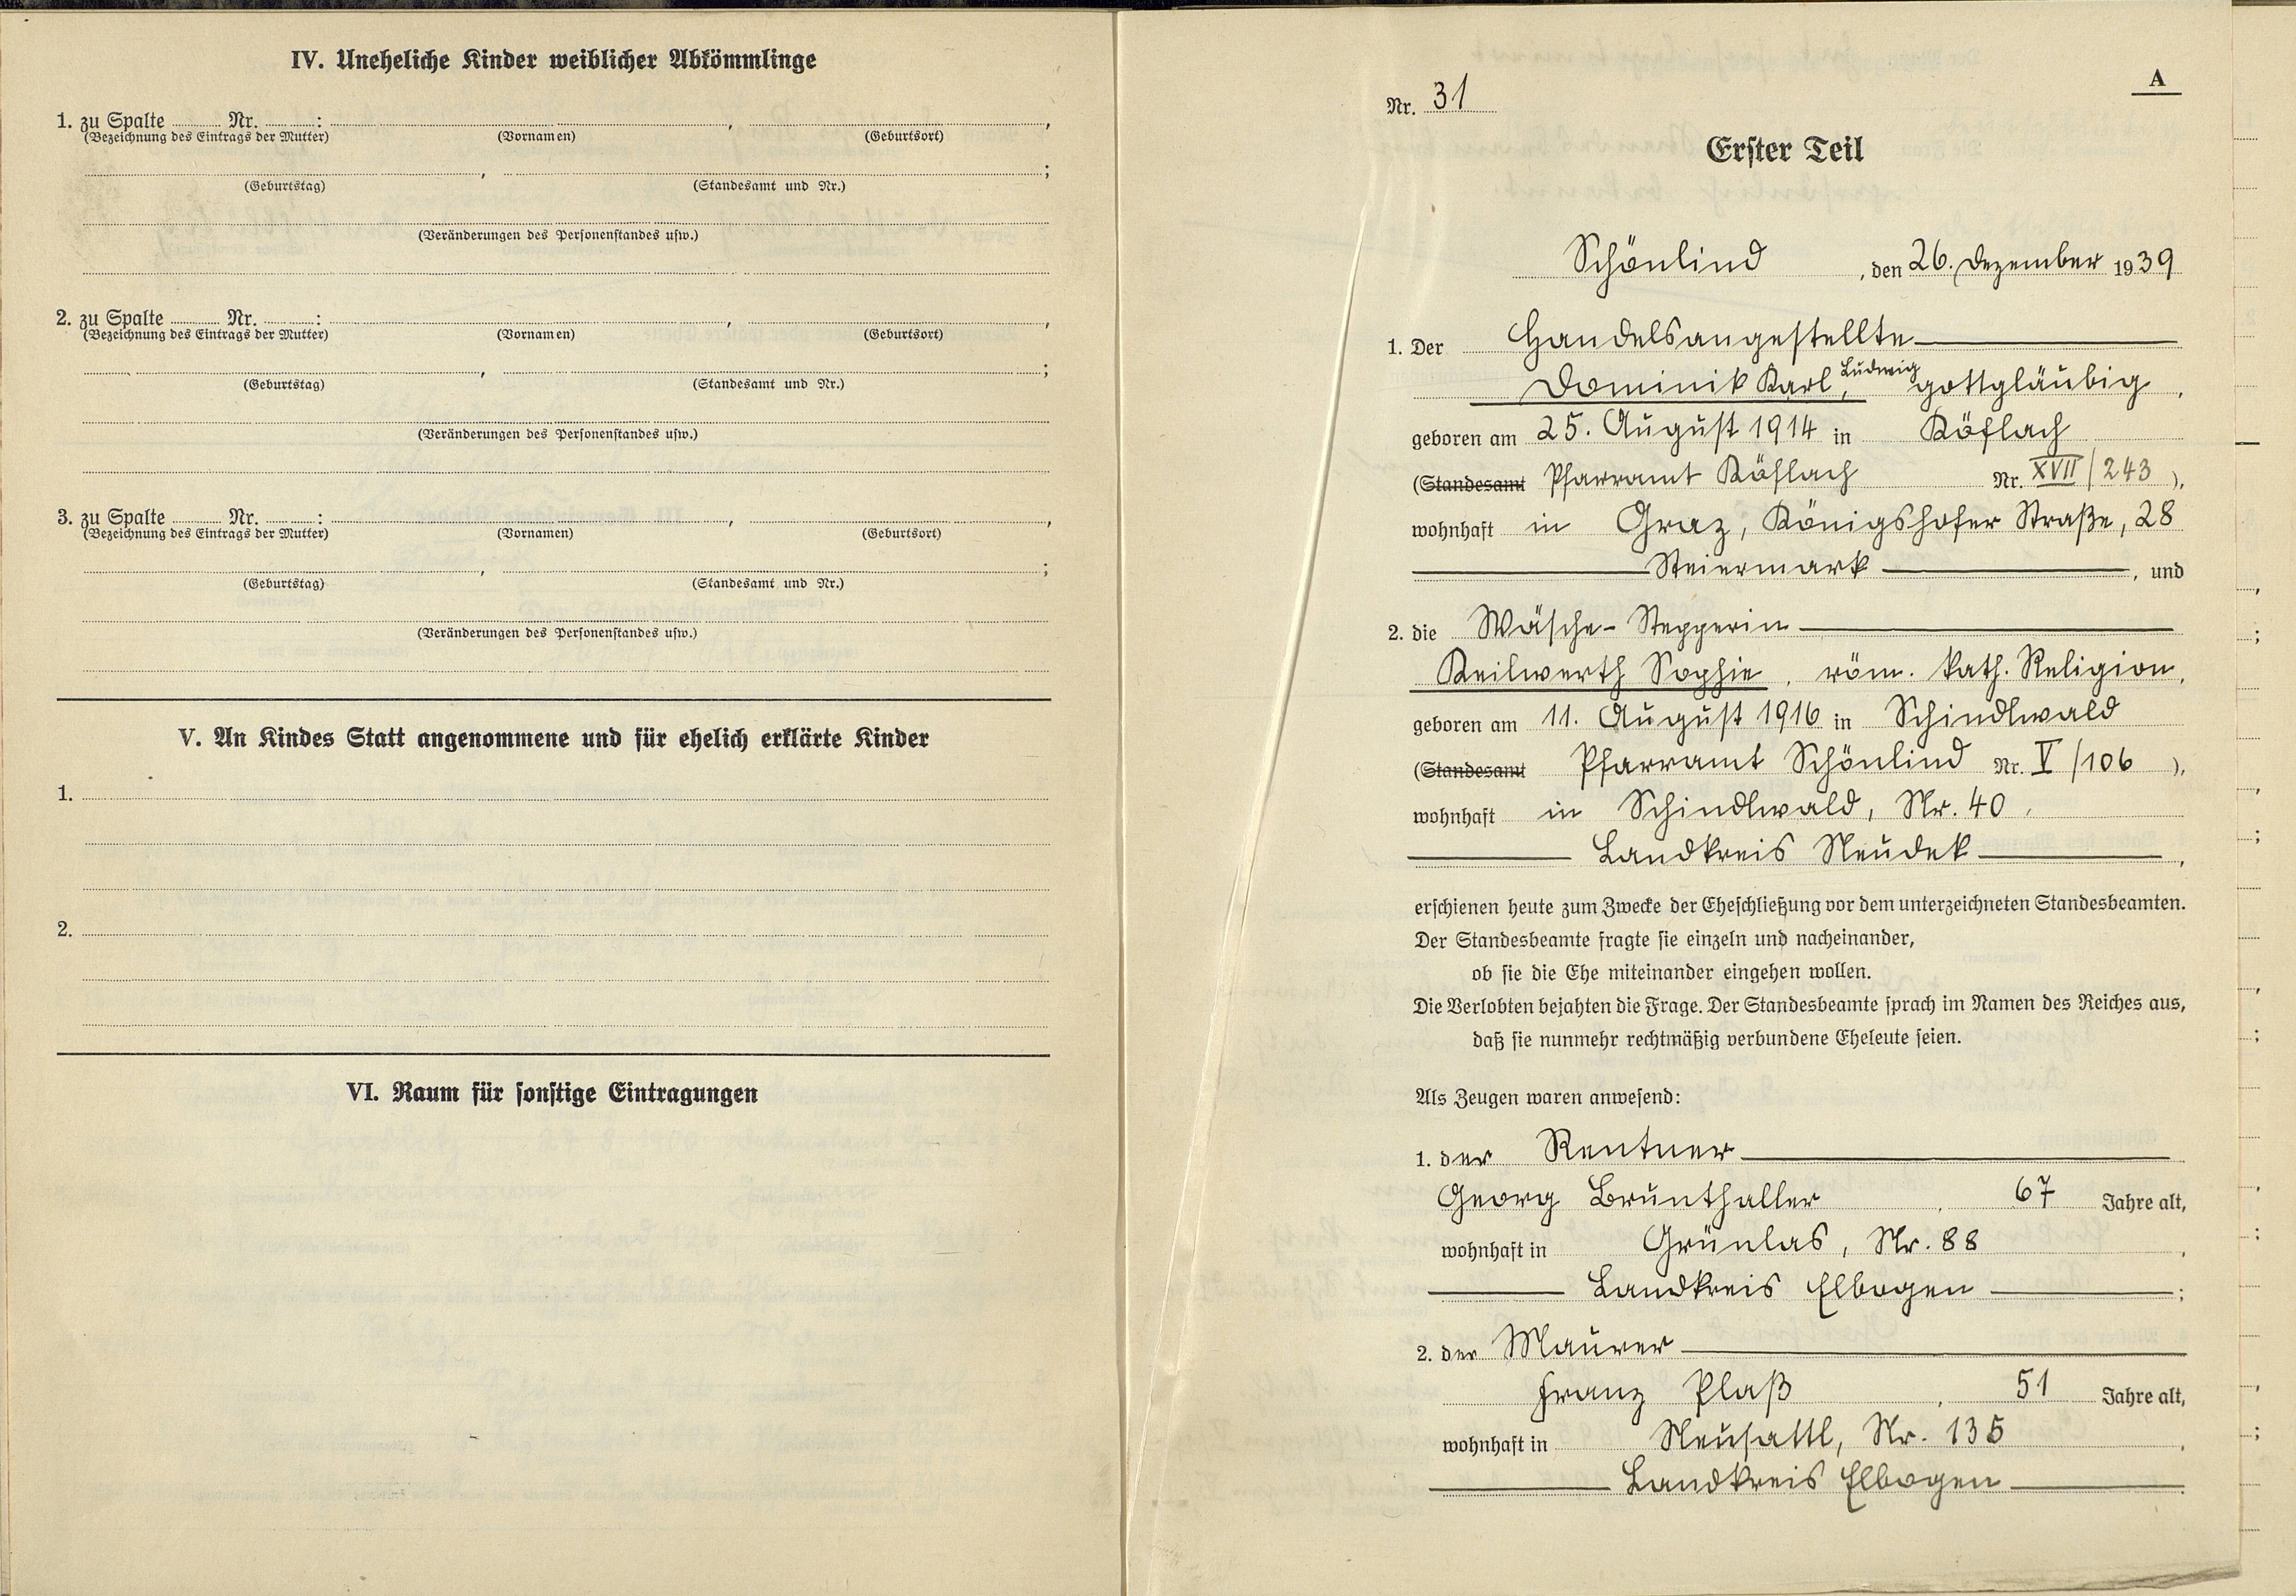 IV. Uneheliche Kinder weiblicher Abkömmlinge
1. zu Spalte Nr. : , ,
(Bezeichnung des Eintrags der Mutter) (Vornamen) (Geburtsort)
, ;
(Geburtstag) (Standesamt und Nr.)
(Veränderungen des Personenstandes usw.)
2. zu Spalte Nr. : , ,
(Bezeichnung des Eintrags der Mutter) (Vornamen) (Geburtsort)
, ;
(Geburtstag) (Standesamt und Nr.)
(Veränderungen des Personenstandes usw.)
3. zu Spalte Nr. : , ,
(Bezeichnung des Eintrags der Mutter) (Vornamen) (Geburtsort)
, ;
(Geburtstag) (Standesamt und Nr.)
(Veränderungen des Personenstandes usw.)
V. An Kindes Statt angenommene und für ehelich erklärte Kinder
1.
2.
VI. Raum für sonstige Eintragungen
A
Nr. 31
Erster Teil
Schönlind, den 26. Dezember 1939
1. Der Handelsangestellte
Dominik Karl, Ludwig gottgläubig,
geboren am 25. August 1914 in Köflach
(Standesamt Pfarramt Köflach Nr. XVII/243),
wohnhaft in Graz, Königshofer Straße, 28
Steiermark, und
2. die Wäsche-Stepperin
Keilwerth Sophie, röm. kath. Religion,
geboren am 11. August 1916 in Schindlwald
(Standesamt Pfarramt Schönlind Nr. V/106),
wohnhaft in Schindlwald, Nr. 40,
Landkreis Neudek,
erschienen heute zum Zwecke der Eheschließung vor dem unterzeichneten Standesbeamten.
Der Standesbeamte fragte sie einzeln und nacheinander,
ob sie die Ehe miteinander eingehen wollen.
Die Verlobten bejahten die Frage. Der Standesbeamte sprach im Namen des Reiches aus,
daß sie nunmehr rechtmäßig verbundene Eheleute seien.
Als Zeugen waren anwesend:
1. der Rentner
Georg Brunthaller, 67 Jahre alt,
wohnhaft in Grünlas, Nr. 88,
Landkreis Elbogen;
2. der Maurer
Franz Plaß, 51 Jahre alt,
wohnhaft in Neusattl, Nr. 135,
Landkreis Elbogen.